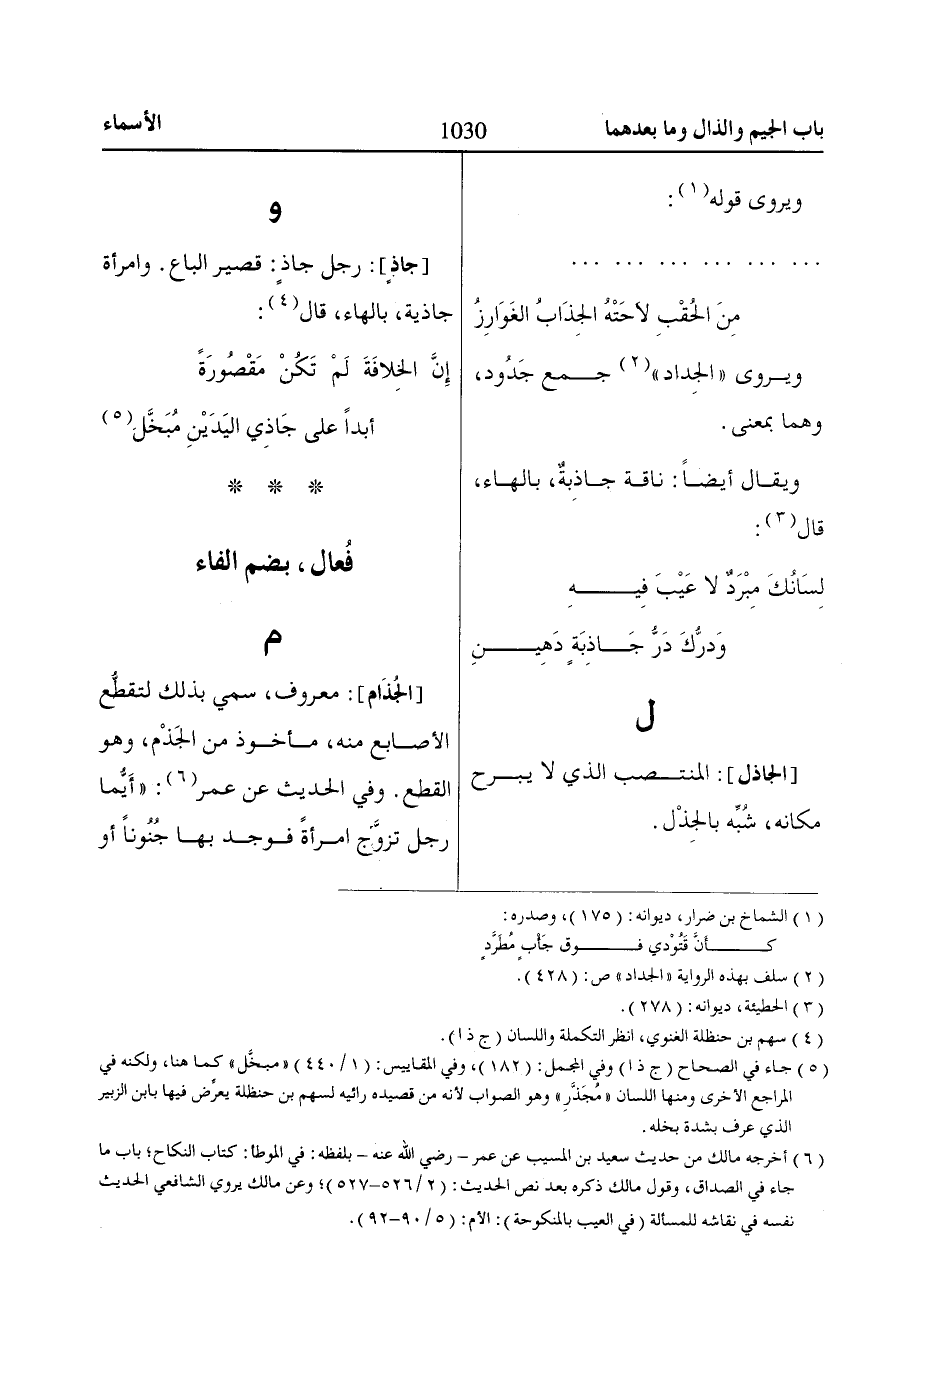 باب الجيم والذال وما بعدهما 1030 الأسماء
ويروى قوله(١):
... ... ... ... ... ...
مِنَ الحُقْبِ لاَحَتْهُ الجِذَابُ الغَوَارِزُ
ويـروى «الجِداد»(٢) جـــمع جَدُود،
وهما بمعنى.
ويقـال أيضـاً: ناقـة جـاذِبةٌ، بالهـاء،
قال(٣):
لِسَانُكَ مِبْرَدٌ لا عَيْبَ فِيـــــــهِ
وَدرُّكَ دَرُّ جَـــاذِبَةٍ دَهِيـــــنِ
ل
[الجاذل]: المنتـصب الذي لا يبـرح
مكانه، شُبِّه بالجِذْل.
و
[جاذٍ]: رجل جاذٍ: قصير الباع. وامرأة
جاذية، بالهاء، قال(٤):
إِنَّ الخِلافَةَ لَمْ تَكُنْ مَقْصُورَةً
أبداً على جَاذِي اليَدَيْنِ مُبَخَّل(٥)
* * *
فُعال، بضم الفاء
م
[الجُذَام]: معروف، سمي بذلك لتقطُّع
الأصـابع منه، مـأخـوذ من الجَذْم، وهو
القطع. وفي الحديث عن عمر(٦): «أيُّما
رجل تزوَّج امـرأةً فـوجـد بهـا جُنُوناً أو
(١) الشماخ بن ضرار، ديوانه: (١٧٥)، وصدره:
كـــــــأنَّ قُتُوْدي فـــــــوق جَأبٍ مُطَرَّدٍ
(٢) سلف بهذه الرواية «الجداد» ص: (٤٢٨).
(٣) الحطيئة، ديوانه: (٢٧٨).
(٤) سهم بن حنظلة الغنوي، انظر التكملة واللسان (ج ذ ا).
(٥) جاء في الصحاح (ج ذ ا) وفي المجمل: (١٨٢)، وفي المقاييس: (٤٤٠/١) «مبخَّل» كما هنا، ولكنه في
المراجع الأخرى ومنها اللسان «مُجَذَّر» وهو الصواب لأنه من قصيده رائيه لسهم بن حنظلة يعرِّض فيها بابن الزبير
الذي عرف بشدة بخله.
(٦) أخرجه مالك من حديث سعيد بن المسيب عن عمر – رضي الله عنه – بلفظه: في الموطأ: كتاب النكاح؛ باب ما
جاء في الصداق، وقول مالك ذكره بعد نص الحديث: (٥٢٦/٢–٥٢٧)؛ وعن مالك يروي الشافعي الحديث
نفسه في نقاشه للمسألة (في العيب بالمنكوحة): الأم: (٩٠/٥–٩٢).